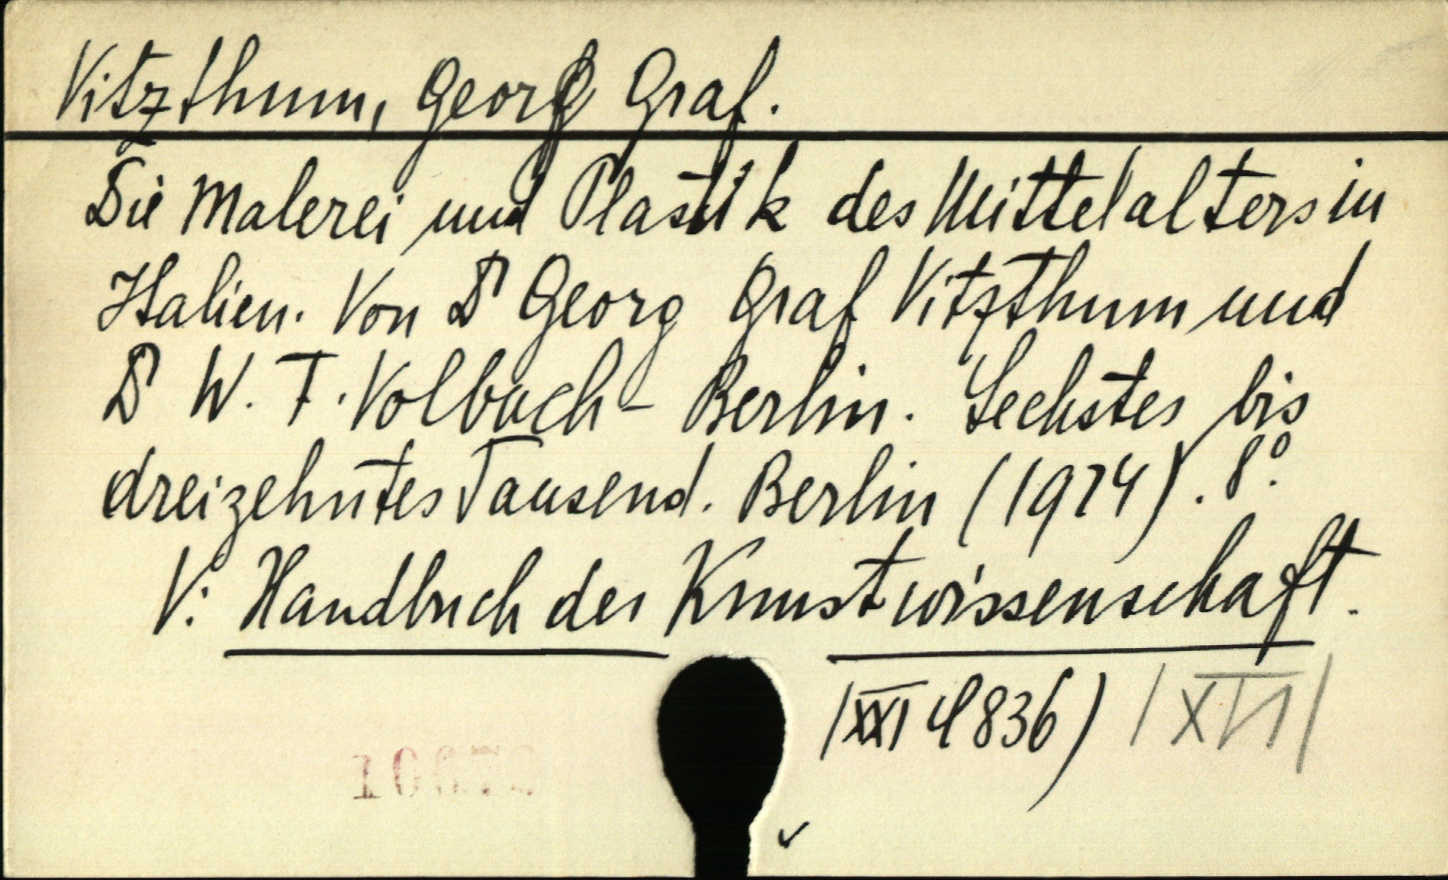 Vitzthum, Georg Graf.
Die Malerei und Plastik des Mittelalters in
Italien. Von Dr Georg Graf Vitzthum und
Dr W. F. Volbach - Berlin. Sechstes bis
dreizehntes Tausend. Berlin (1924). 8°.
V: Handbuch der Kunstwissenschaft.
(XXI 4836) |XVI|